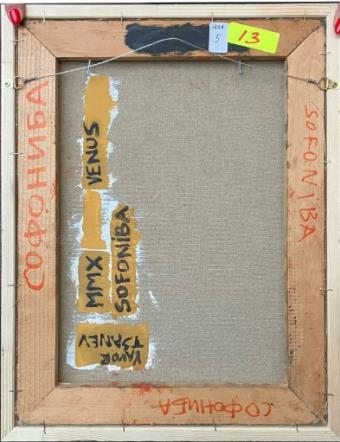 5
13
СОФОНИБА
SOFONIBA
VENUS
MMX
SOFONIBA
YAVOR
TSANEV
СОФОНИБА